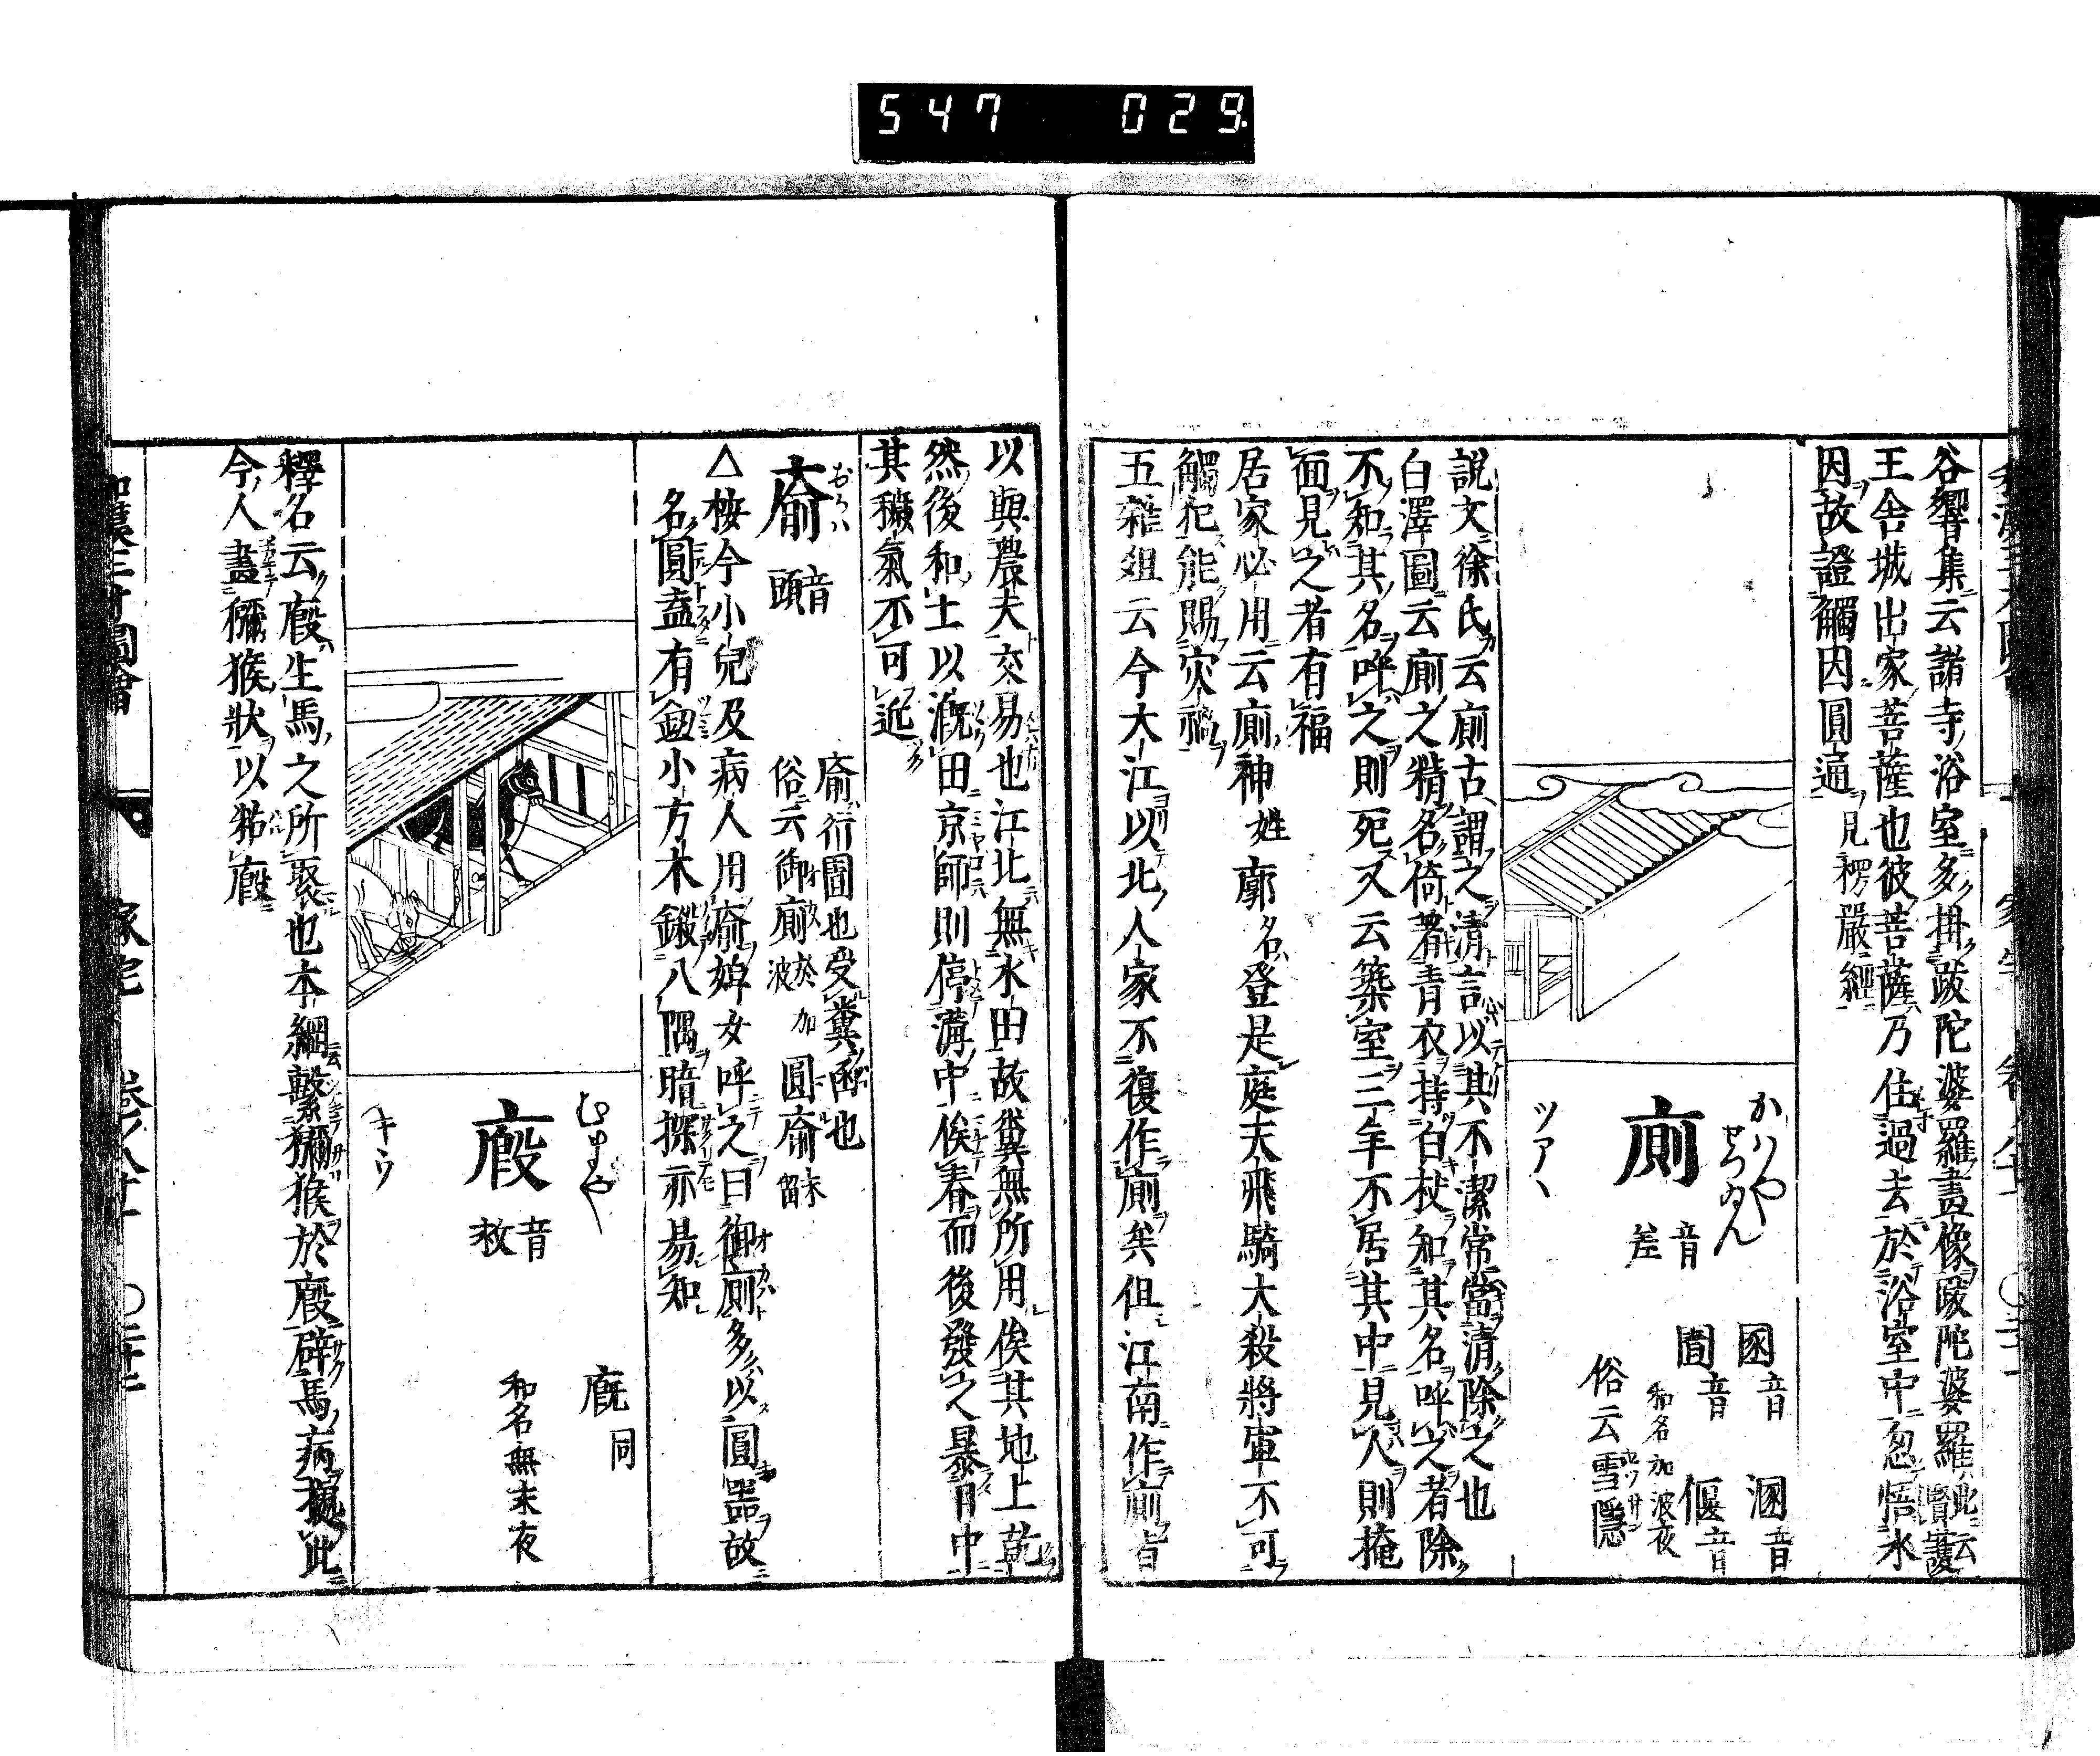 547 029
谷響集云諸寺浴室多掛跋陀婆羅畫像跋陀婆羅此云賢護
王舍城出家菩薩也彼菩薩乃住過去於浴室中忽悟水
因故證觸因圓通見楞嚴經
かハや
せつゐん
廁
音差
ツアヽ
圂音
溷音
圊音
偃音
和名加波夜
俗云雪隱
說文徐氏云廁古謂之清言以其不潔常當清除之也
白澤圖云廁之精名倚著青衣持白杖知其名呼之者除
不知其名呼之則死又云築室三年不居其中見人則掩
面見之者有福
居家必用云廁神姓廓名登是庭天飛騎大殺將軍不可
觸犯能賜灾禍
五雜俎云今大江以北人家不復作廁矣但江南作廁皆
以與農夫交易也江北無水田故糞無所用俟其地上乾
然後和土以漑田京師則停溝中俟春而後發之暴日中
其穢氣不可近
おかハ
㢏
音頭
㢏行圊也受糞函也
俗云御廁於加波圓㢏末留
△桉今小兒及病人用㢏婢女呼之曰御廁多以圓器故
名圓盍有釦小方木鍬八隅暗探亦易知
むまや
廏
音救
キウ
廐同
和名無末夜
釋名云廏生馬之所聚也本綱云繫獼猴於廏辟馬病據此
今人畫獼猴狀以粘廏
和漢三才圖會
家宅
卷ノ八十一